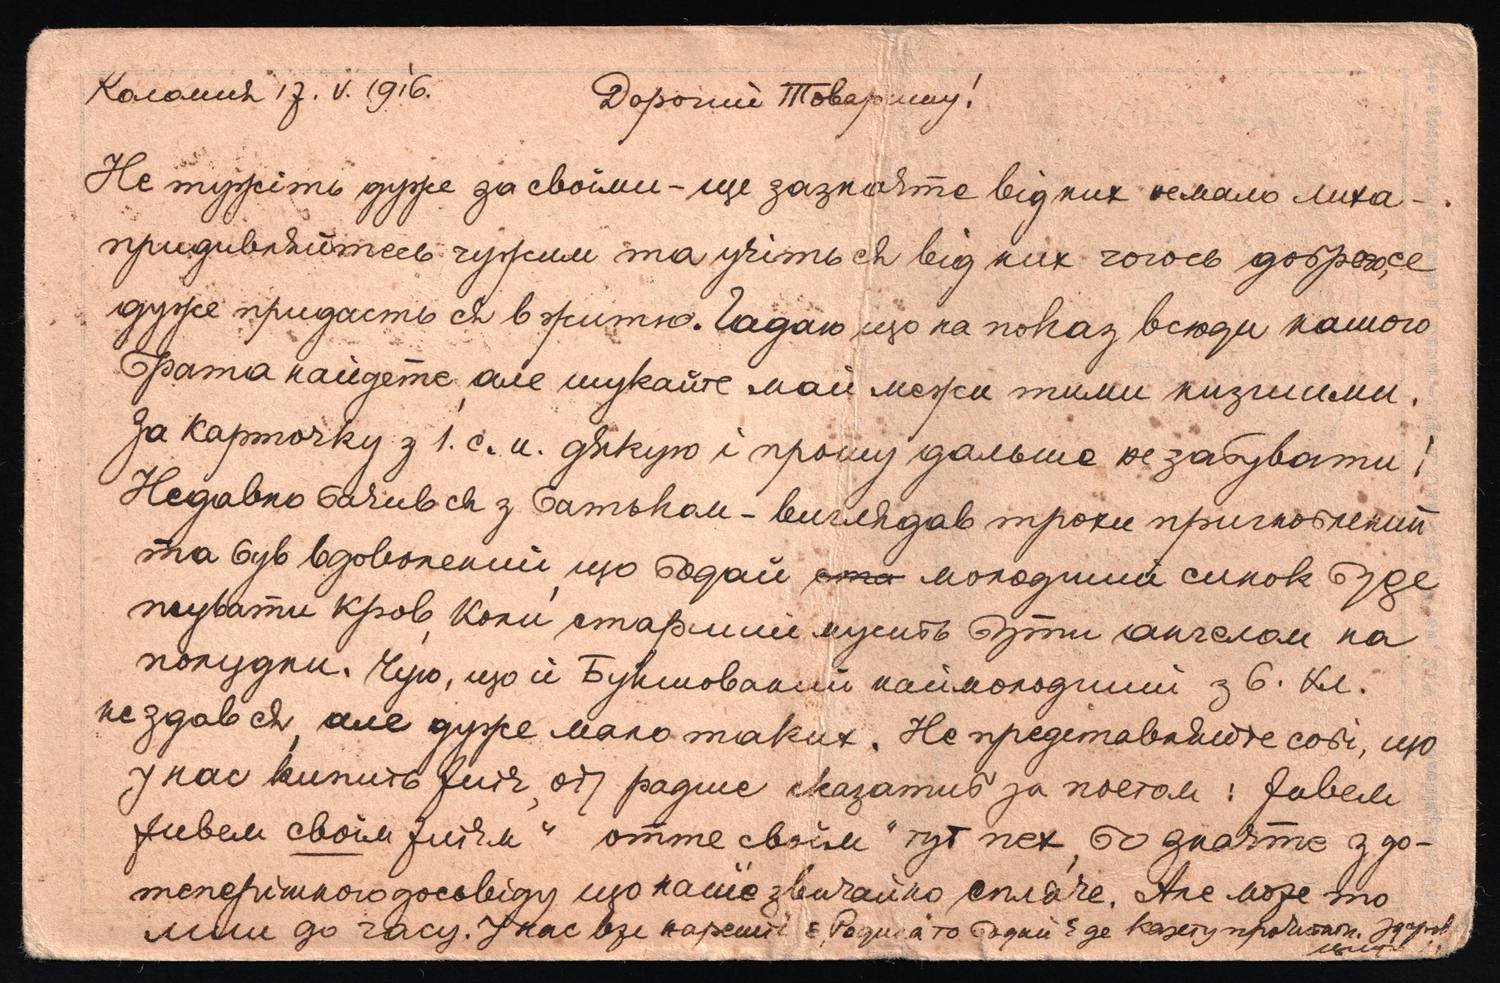 Коломия 17. V. 1916. Дорогий Товаришу!
Не тужіть дуже за своїми – ще зазнаєте від них немало лиха –
придивляйтесь чужим та учіться від них чогось доброго, се
дуже придасть ся в житю. Гадаю що на показ всюди нашого
брата найдете, але шукайте май межи тими низшими.
За карточку з 1. с. м. дякую і прошу дальше не забувати!
Недавно бачився з батьком – виглядав трохи пригноблений
та був вдоволений, що бодай ста молодший синок буде
псувати кров, коли старший мусить бути ангелом на
полудни. Чую, що й Букшований наймолодший з 6. кл.
не здався, але дуже мало таких. Не представляйте собі, що
у нас кипить житє, от радше сказатиб за поетом: живем
живем своїм житєм" отте своїм" тут пех, бо знаєте з до-
теперішного досьвіду що наше звичайно спляче. Але може то
лиш до часу. У нас вже нарешті є Родина то бодай є де газету прочитати. Здоров